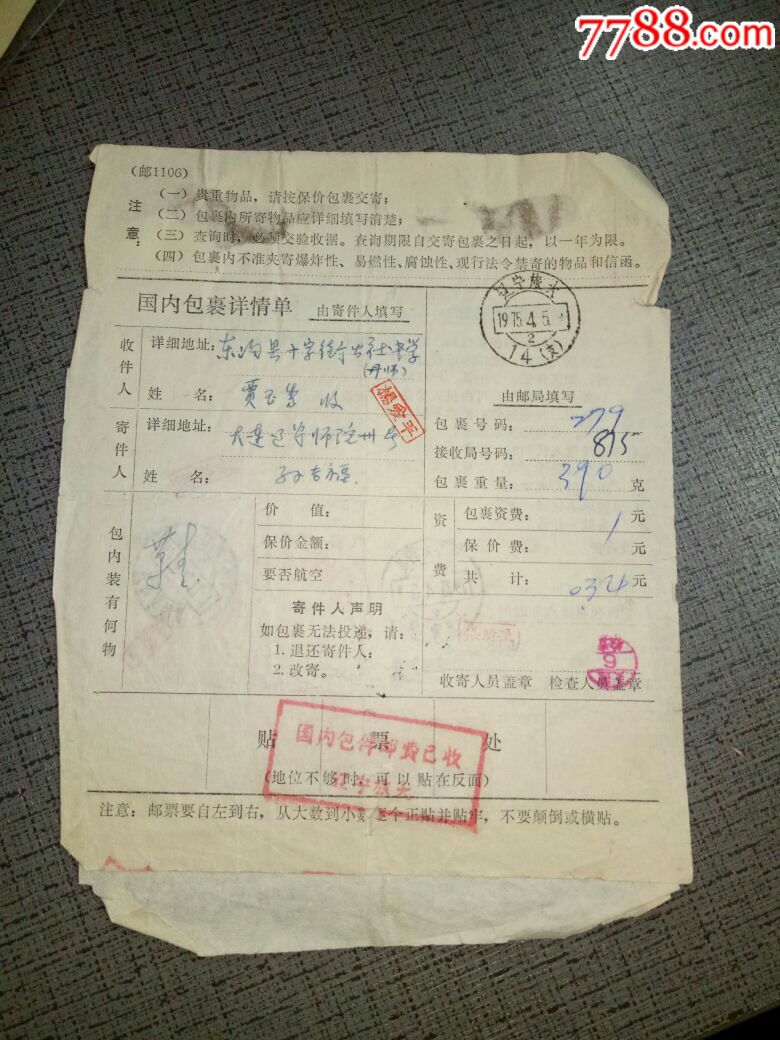 7788.com
(邮1106)
注意:
(一) 贵重物品,请按保价包裹交寄;
(二) 包裹内所寄物品应详细填写清楚;
(三) 查询时,必须交验收据。查询期限自交寄包裹之日起,以一年为限。
(四) 包裹内不准夹寄爆炸性、易燃性、腐蚀性、现行法令禁寄的物品和信函。
国内包裹详情单 由寄件人填写
辽宁旅大
1975.4.5
2
14(支)
收件人
详细地址: 东沟县十字街公社中学
姓 名: 贾玉 收
寄件人
详细地址: 大连辽宁师院
姓 名: 孙吉福
由邮局填写
包裹号码: 279
接收局号码: 875
包裹重量: 390 克
包内装有何物
鞋
价 值:
保价金额:
要否航空
资费
包裹资费: 元
保价费: 元
共 计: 034 元
寄件人声明
如包裹无法投递,请:
1.退还寄件人;
2.改寄。
9
收寄人员盖章 检查人员盖章
贴 票 处
国内包件邮费已收
辽宁旅大
(地位不够时,可以贴在反面)
注意:邮票要自左到右,从大数到小数逐个正贴并贴牢,不要颠倒或横贴。